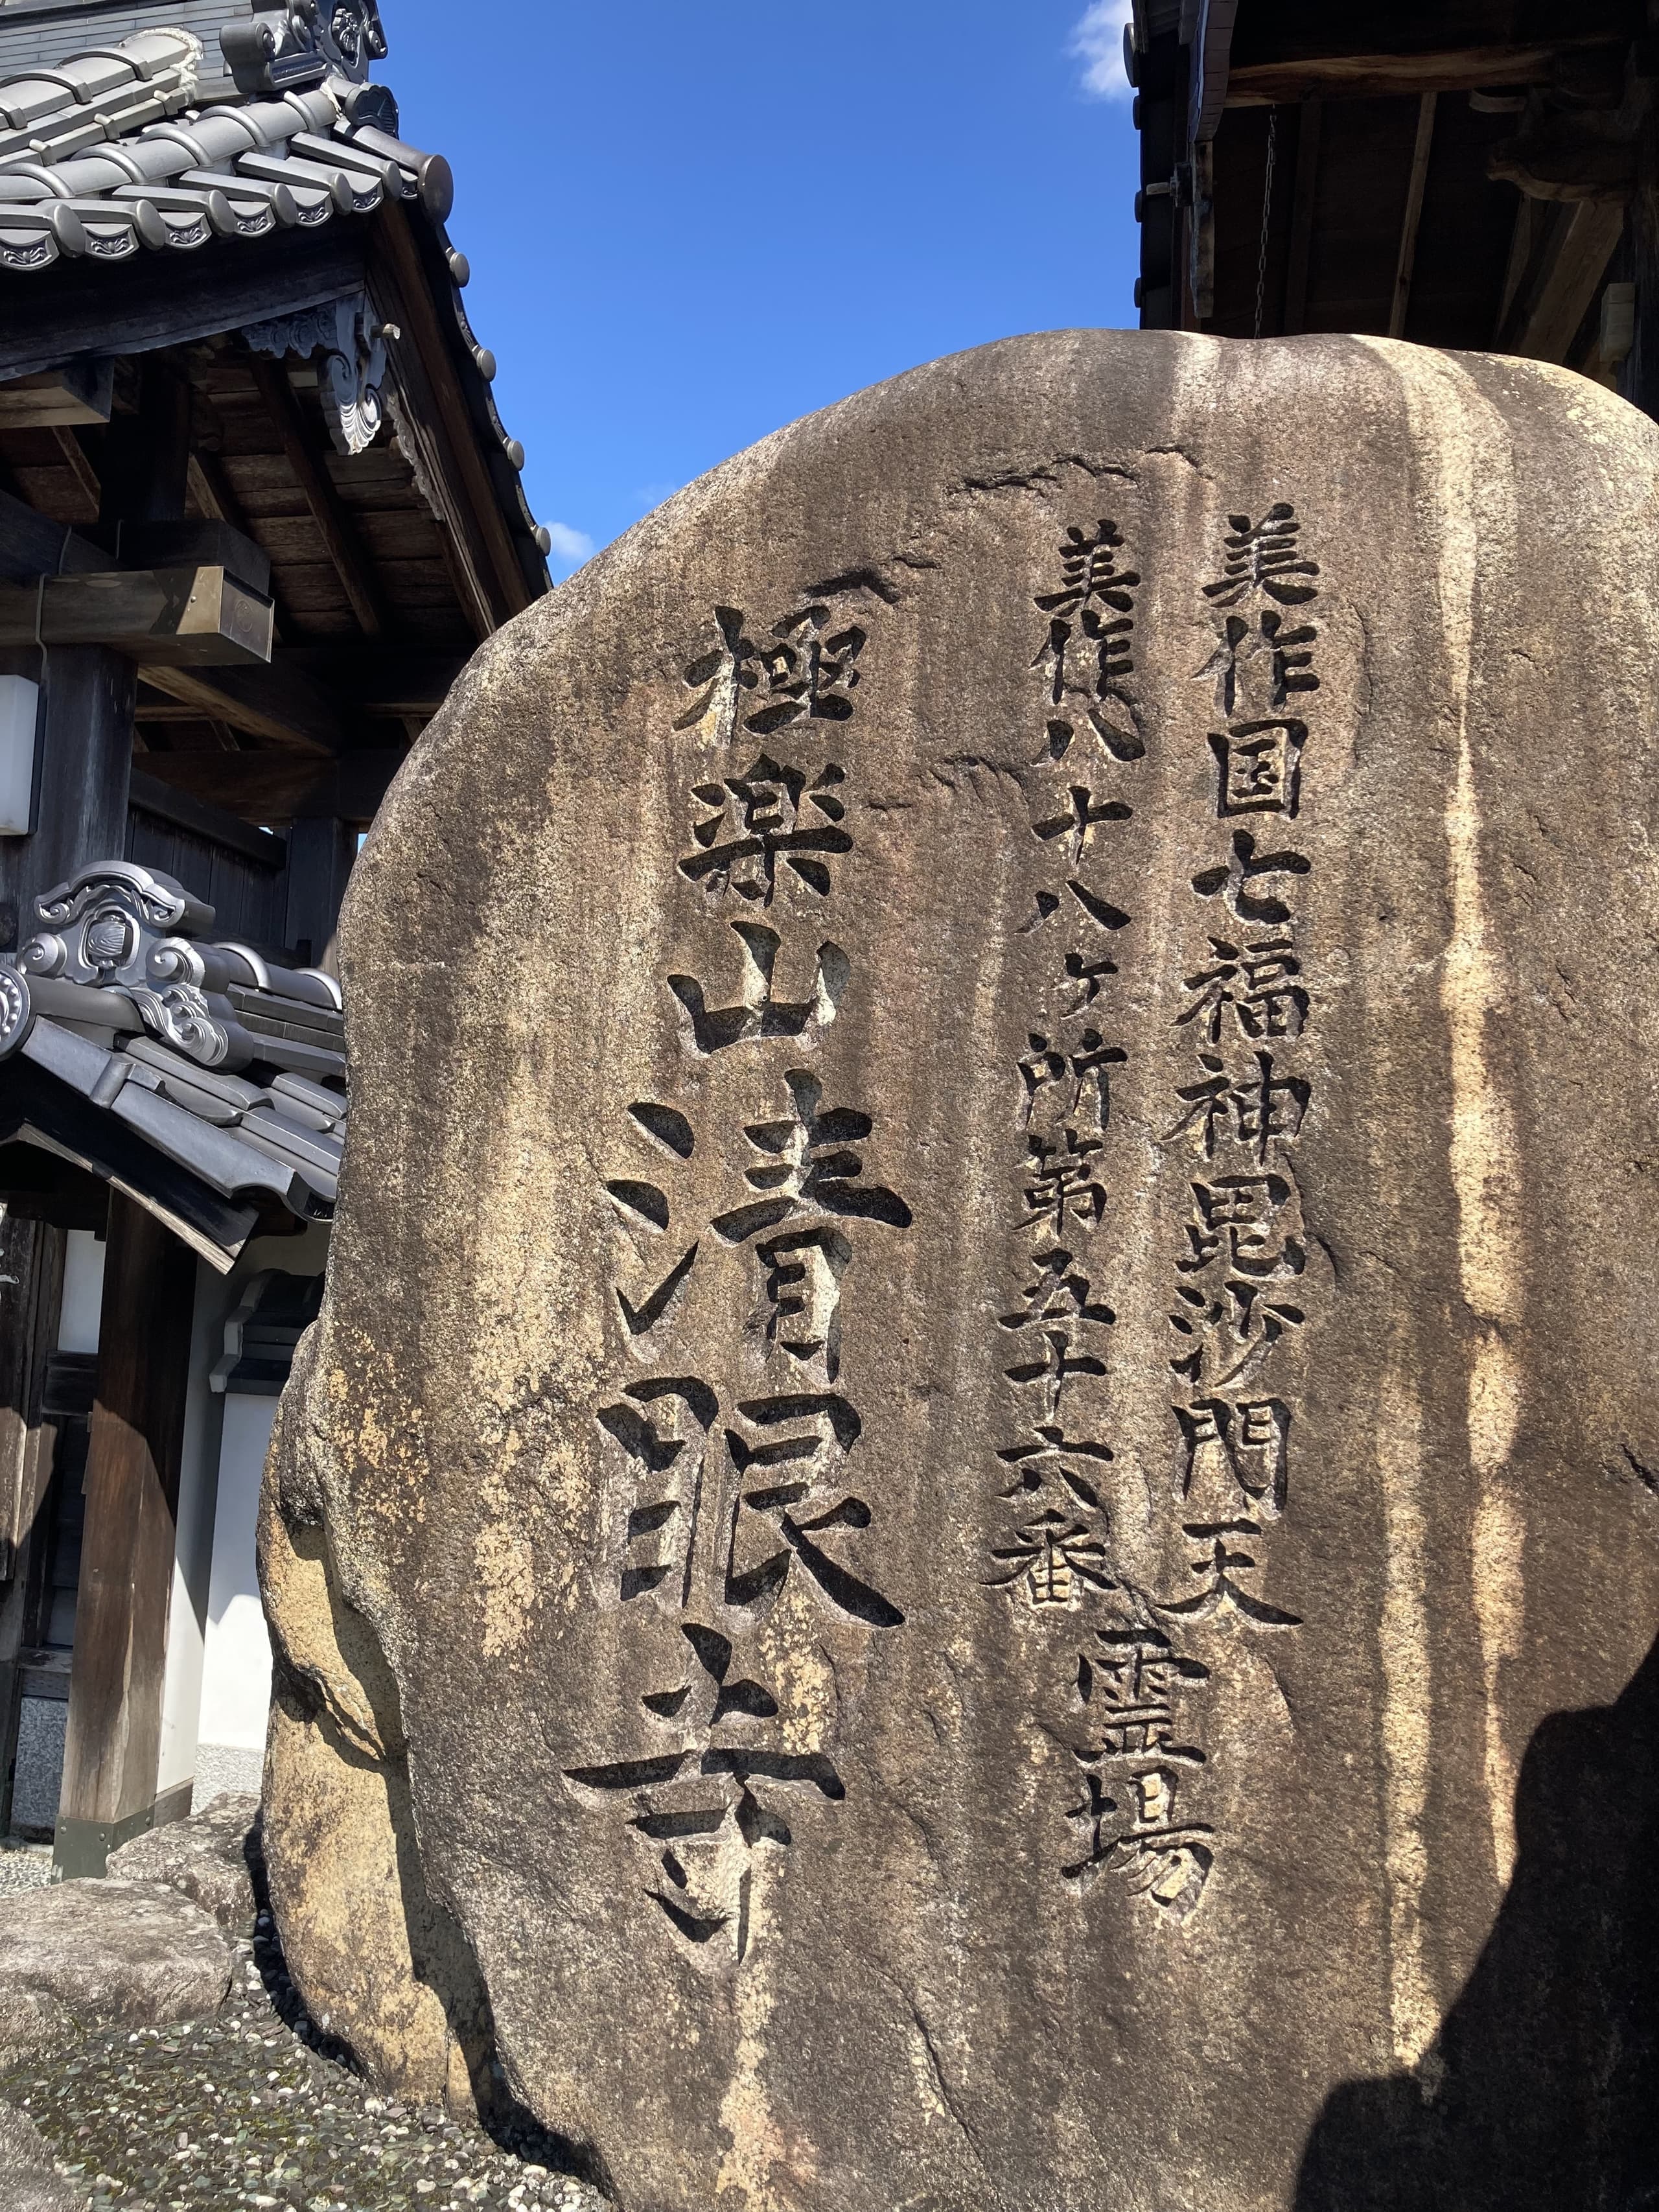 美作国七福神毘沙門天
美作八十八ヶ所第五十六番
霊場
極楽山清眼寺